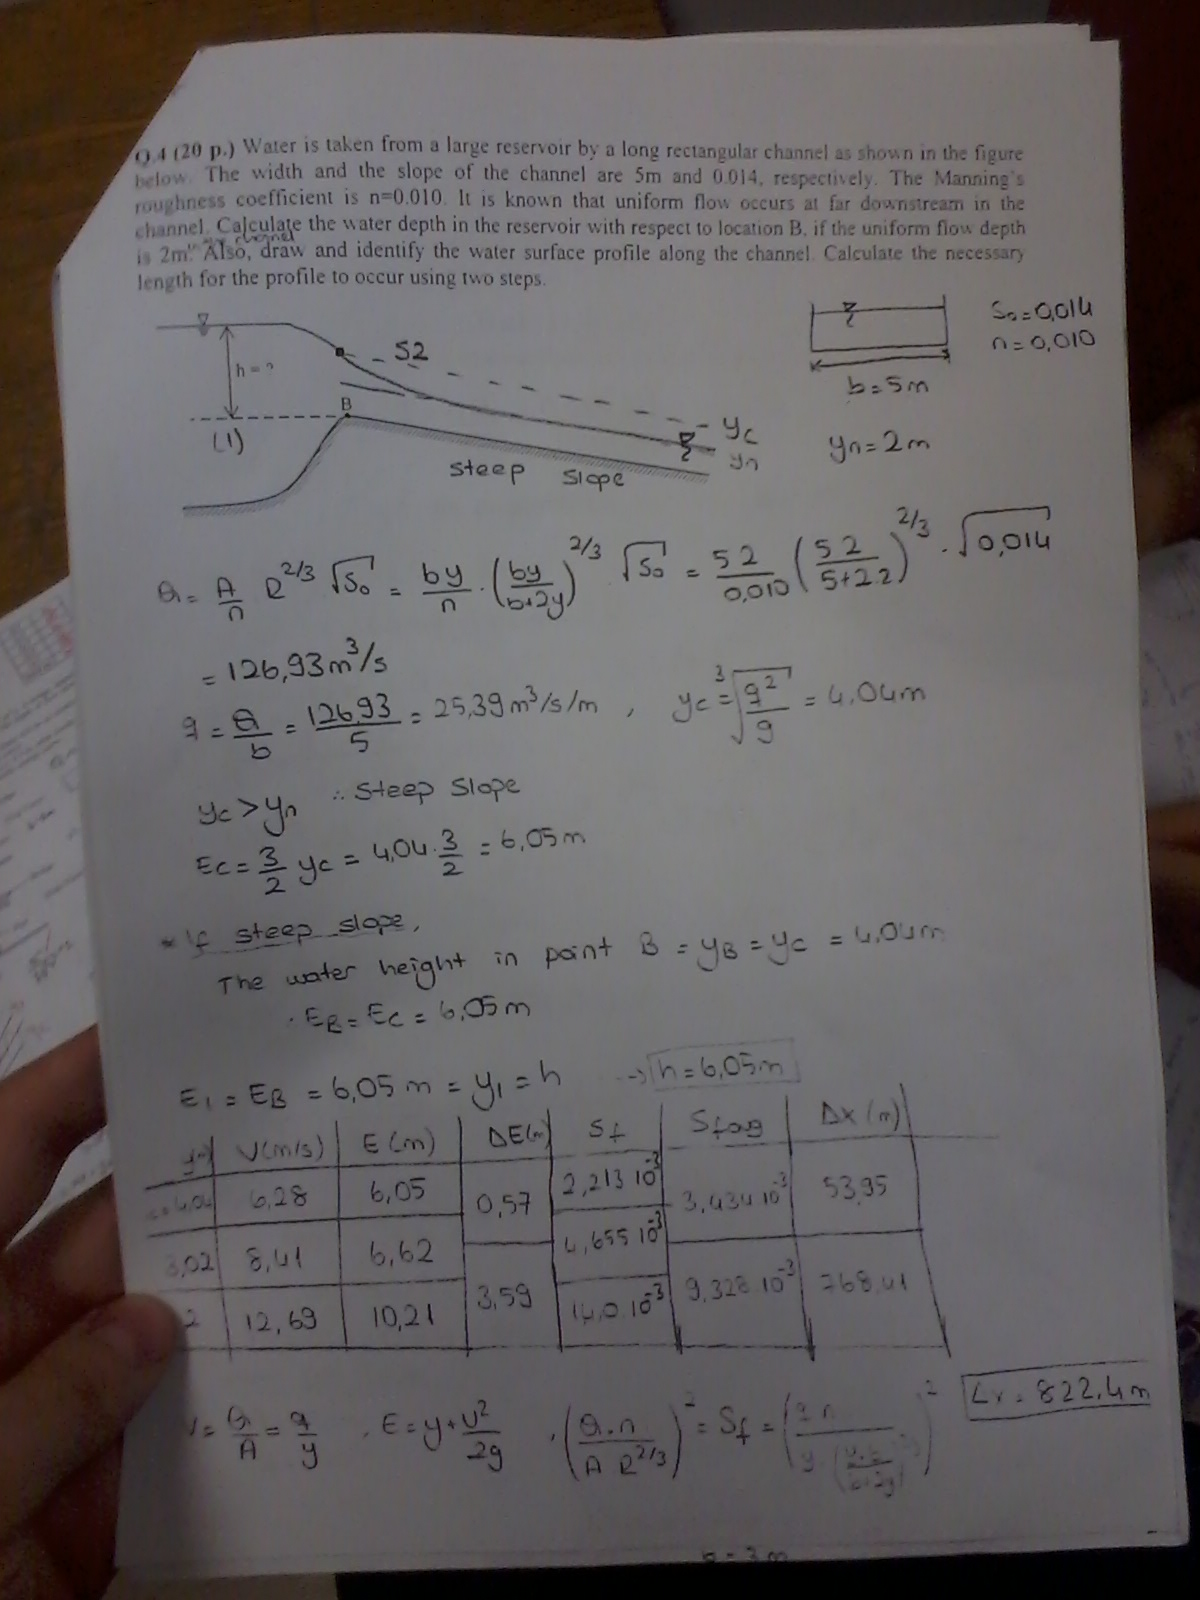 Q.4 (20 p.) Water is taken from a large reservoir by a long rectangular channel as shown in the figure
below. The width and the slope of the channel are 5m and 0.014, respectively. The Manning's
roughness coefficient is n=0.010. It is known that uniform flow occurs at far downstream in the
channel. Calculate the water depth in the reservoir with respect to location B, if the uniform flow depth
is 2m. Also, draw and identify the water surface profile along the channel. Calculate the necessary
length for the profile to occur using two steps.
h = ?
S2
B
(1)
yc
yn
steep slope
b = 5m
S₀ = 0,014
n = 0,010
yn = 2m
Q = A/n R^2/3 √S₀ = by/n · (by/b+2y)^2/3 √S₀ = 5.2/0,010 (5.2/5+2.2)^2/3 · √0,014
= 126,93 m³/s
q = Q/b = 126,93/5 = 25,39 m³/s/m , yc = ³√q²/g = 4,04m
yc > yn ∴ Steep Slope
Ec = 3/2 yc = 4,04 · 3/2 = 6,05 m
* If steep slope,
The water height in point B = yB = yc = 4,04m
· EB = Ec = 6,05 m
E1 = EB = 6,05 m = y1 = h → h = 6,05m
V(m/s) E (m) ΔE(m) Sf Sfavg ΔX (m)
4,04 6,28 6,05 0,57 2,213 10⁻³ 3,434 10⁻³ 53,95
3,02 8,41 6,62 4,655 10⁻³
2 12,69 10,21 3,59 14,0 10⁻³ 9,328 10⁻³ 768,41
V = Q/A = q/y , E = y + V²/2g , (Q.n/A R^2/3)² = Sf =
= 822,4m